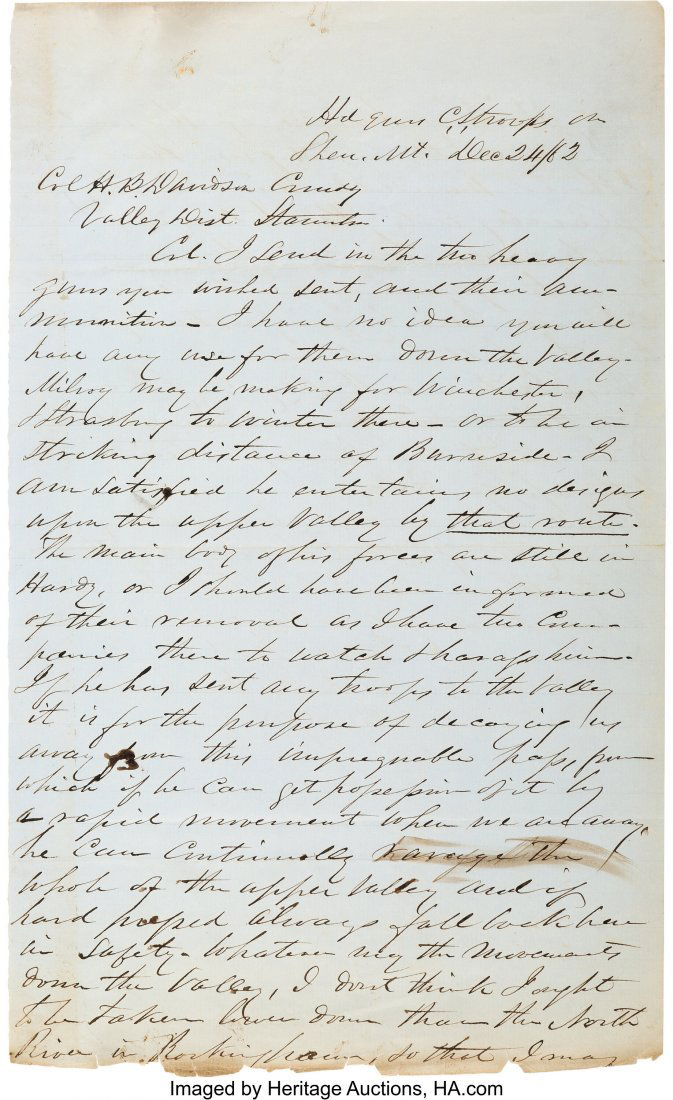 Hd qurs C.S. troops on
Shen. Mt. Dec 24/62
Col H. B. Davidson Comdg
Valley Dist. Staunton.
Col. I send in the two heavy
guns you wished sent, and their am-
munition - I have no idea you will
have any use for them down the Valley -
Milroy may be making for Winchester,
& Strasburg to winter there - or to be in
striking distance of Burnside - I
am satisfied he entertains no designs
upon the upper Valley by that route.
The main body of his forces are still in
Hardy, or I should have been informed
of their removal as I have two Com-
panies there to watch & harass him -
If he has sent any troops to the Valley
it is for the purpose of decoying us
away from this impregnable pass, from
which if he can get possession of it by
a rapid movement when we are away,
he can continually ravage the
whole of the upper Valley and if
hard pressed always fall back here
in safety - Whatever may the movements
down the Valley, I dont think I ought
to be taken lower down than the North
River in Rockingham, so that I may
Imaged by Heritage Auctions, HA.com